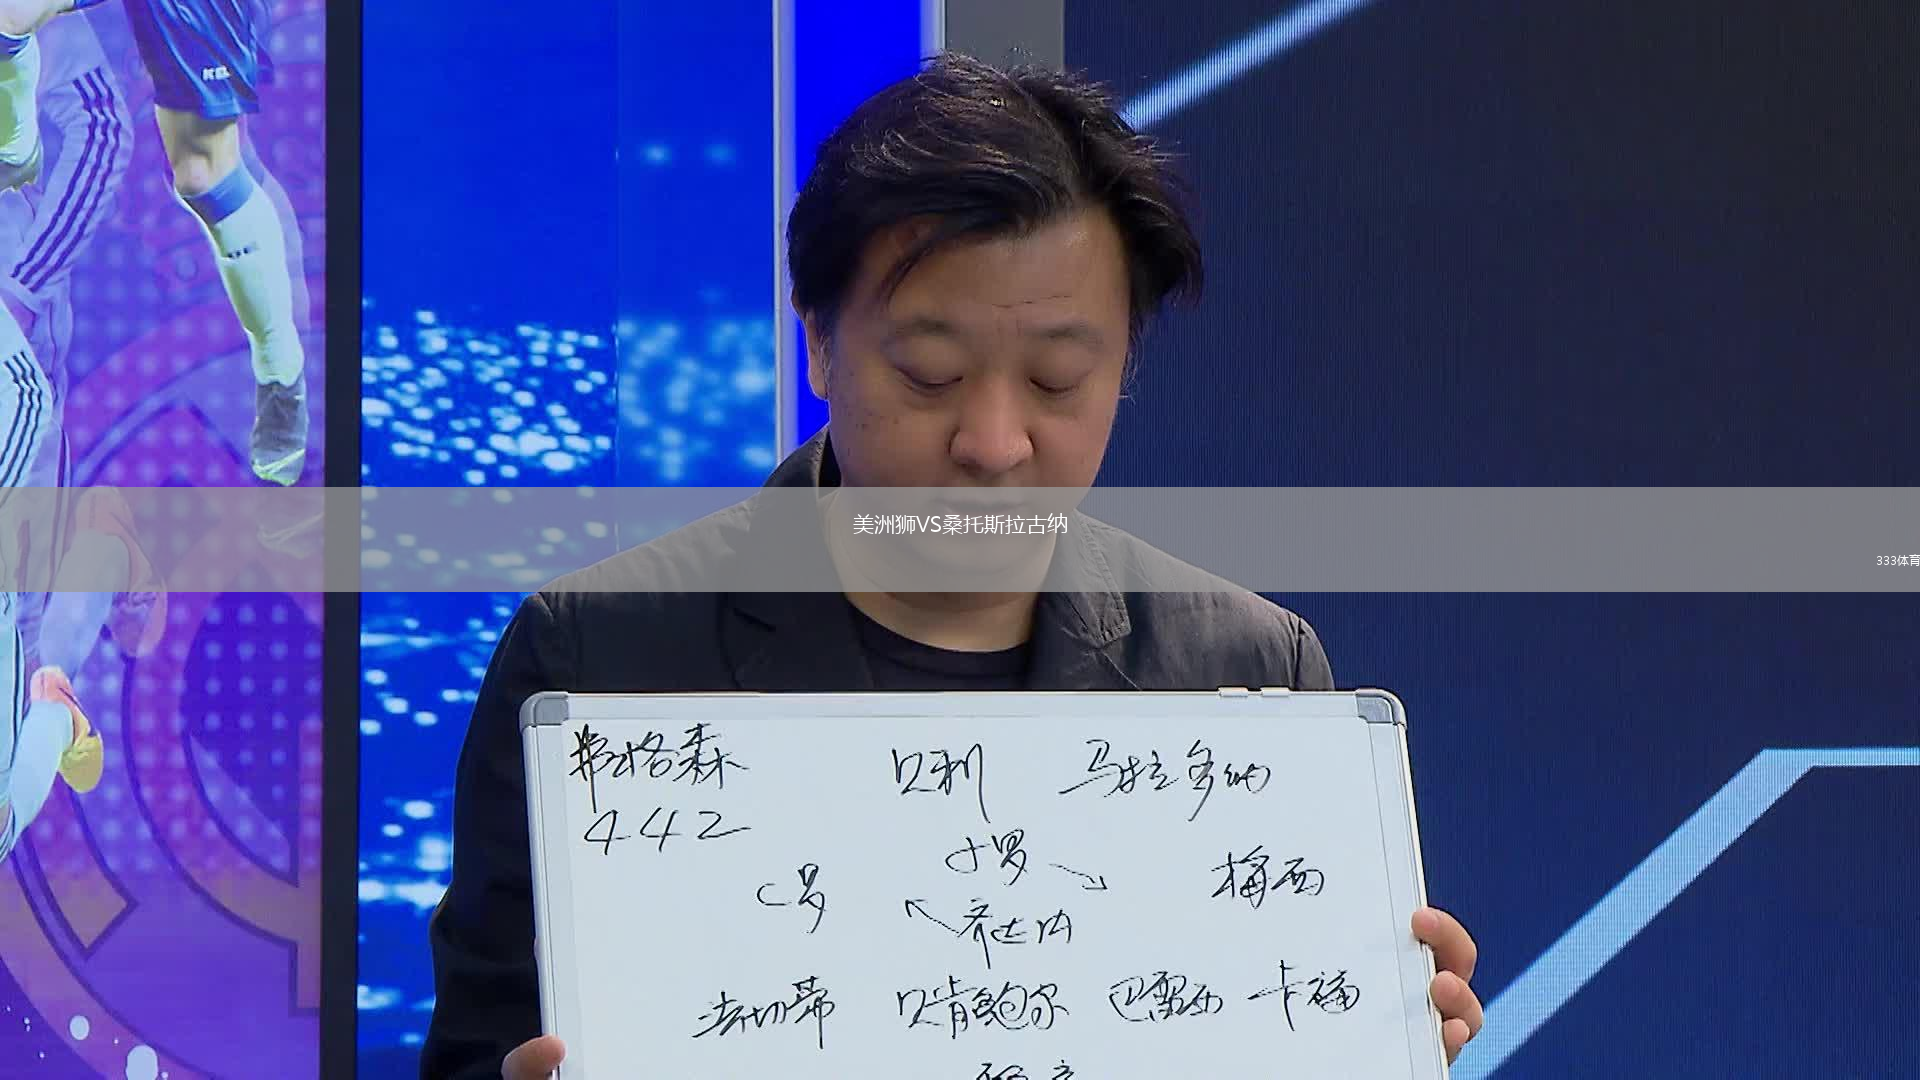 美洲狮VS桑托斯拉古纳
333体育
弗格森 贝利 马拉多纳
442
小罗
C罗 梅西
齐达内
法切蒂 贝肯鲍尔 巴雷西 卡福